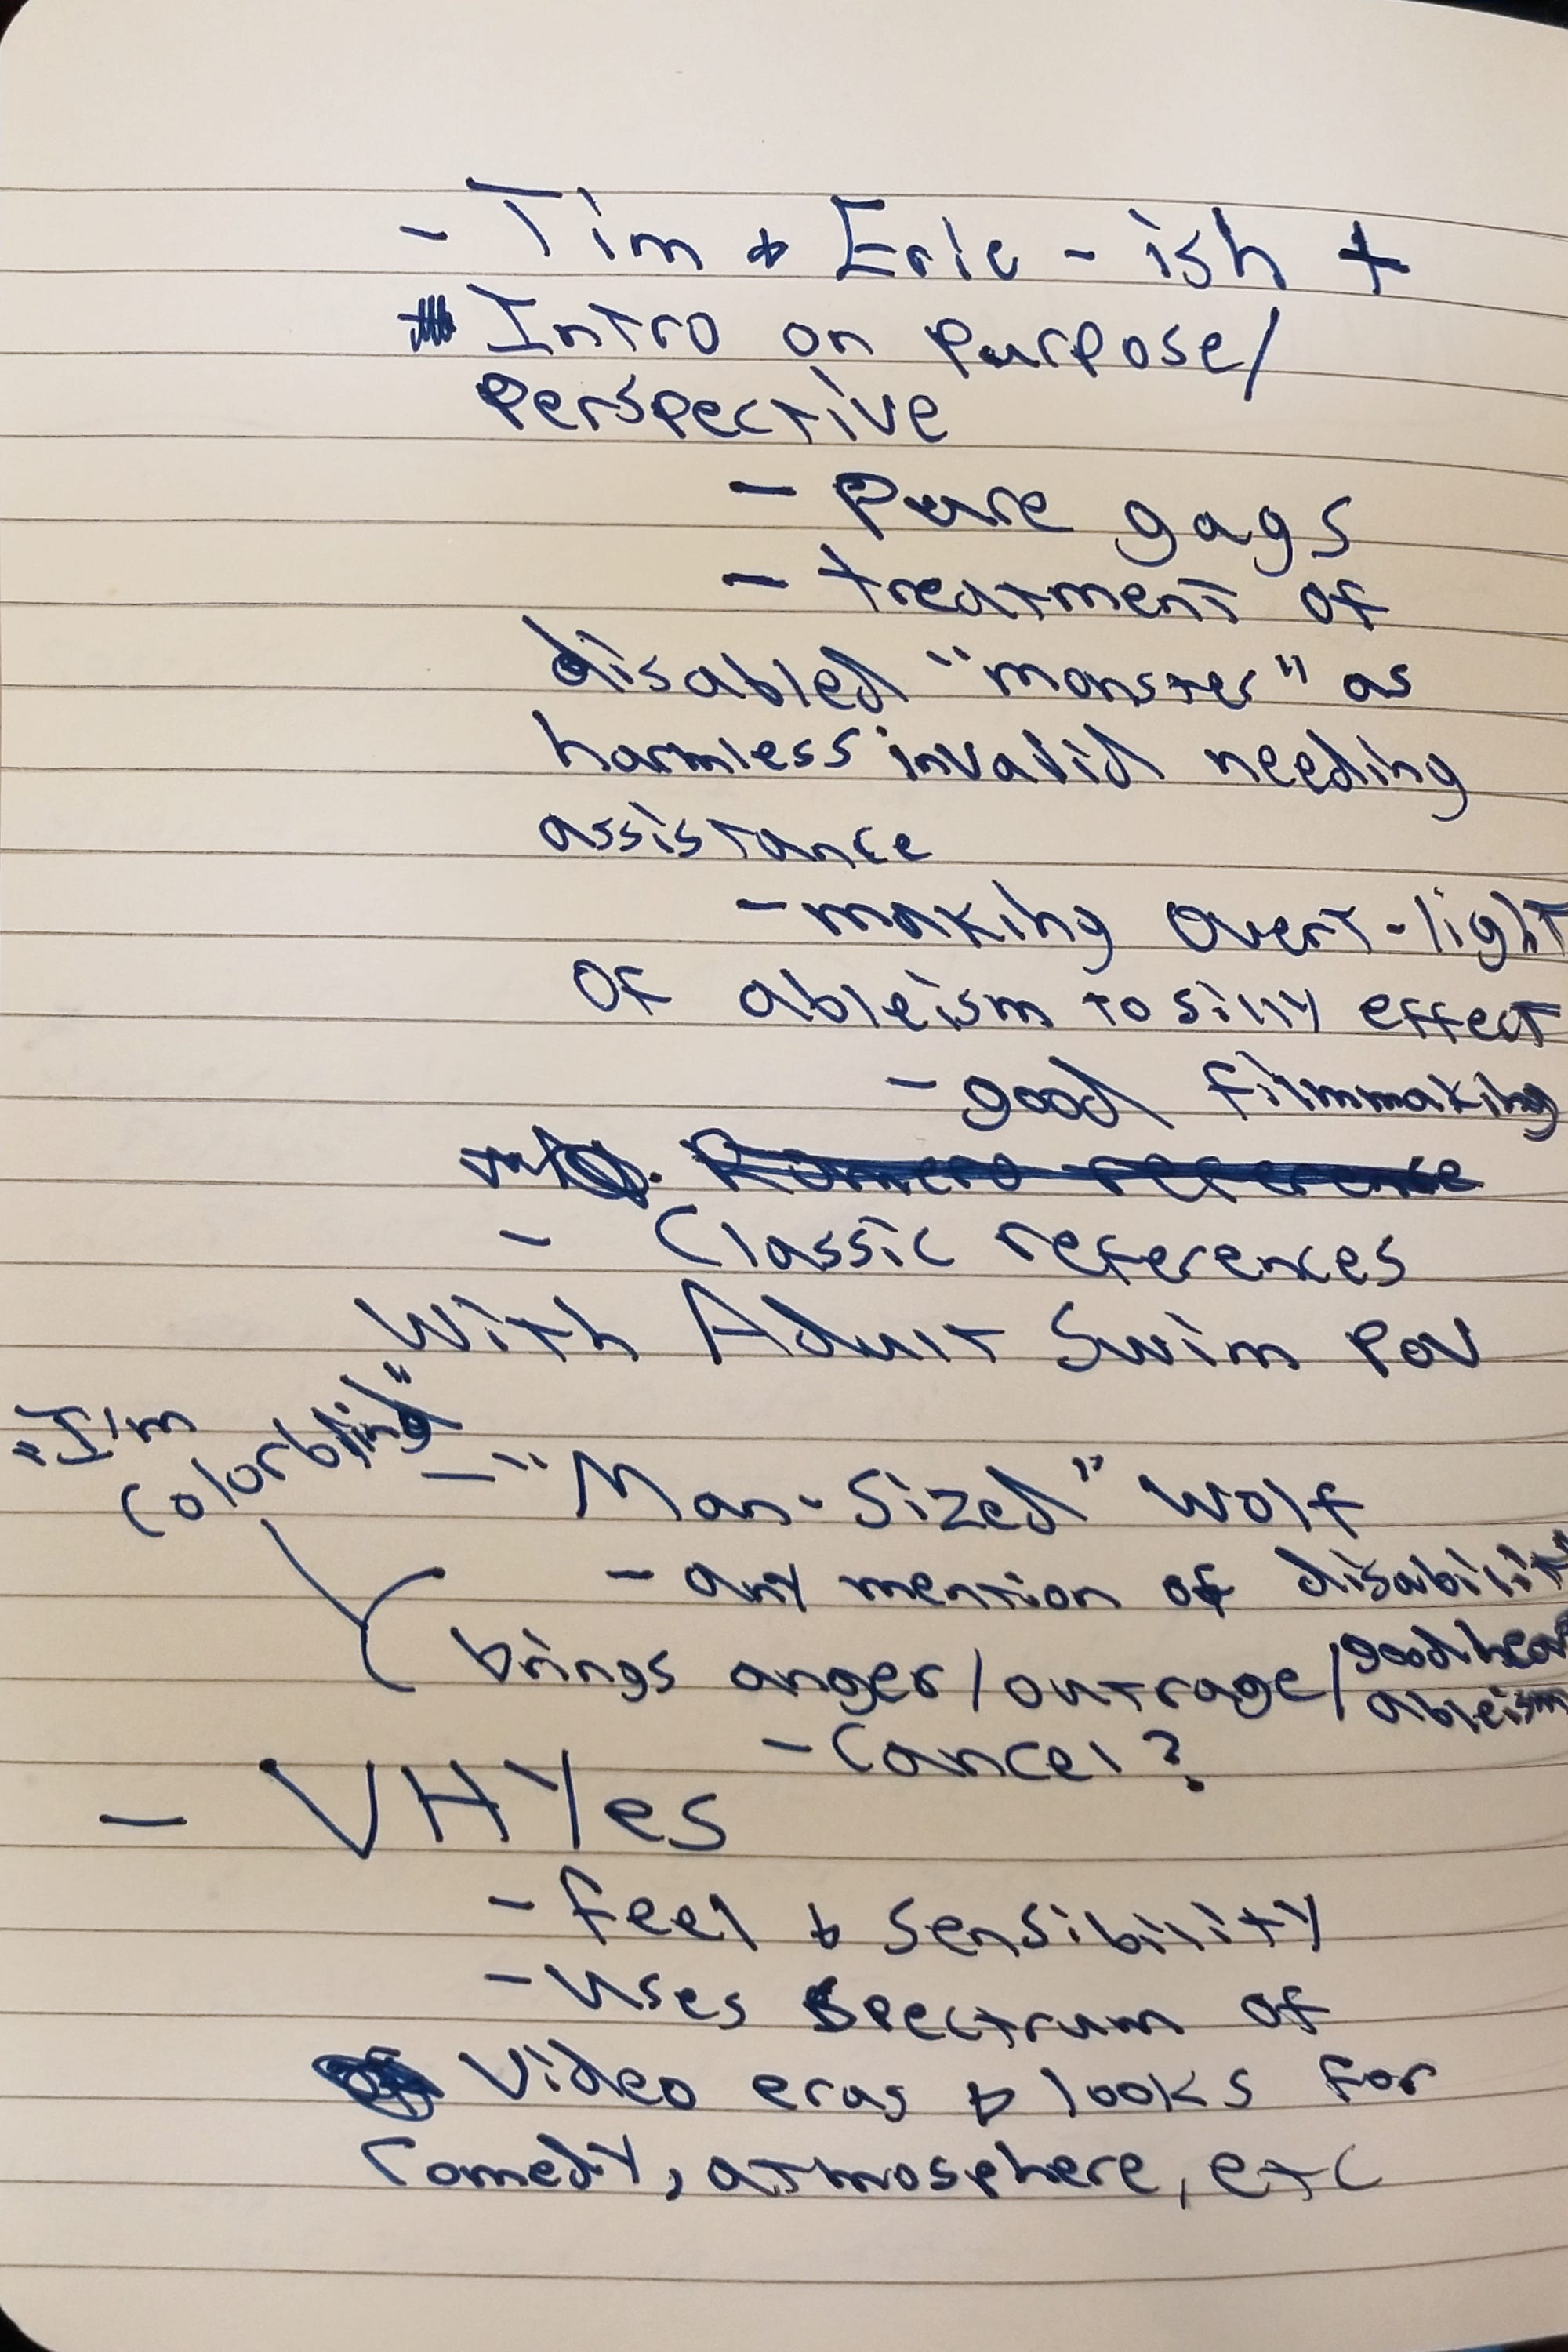 - Tim & Eric - ish +
Intro on purpose/
Perspective
- Pure gags
- treatment of
disabled "monster" as
harmless invalid needing
assistance
- making overt-light
of ableism to silly effect
- good filmmaking
Romero reference
- Classic references
With Adult Swim POV
"I'm
colorblind"
- "Man-Sized" wolf
- any mention of disability
brings anger/outrage/good hear
ableism
- Cancel?
- VHYes
- feel & sensibility
- uses spectrum of
video eras & looks for
comedy, atmosphere, etc